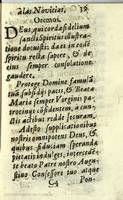 alas Nouicias. 38
Oremus.
Deus, qui corda fidelium
sancti Spiritus illustra-
tione docuisti: da nos in eodẽ
spiritu recta sapere, & de
eius semper consolatione
gaudere.
Protege Domine famulũ
tuũ subsidijs pacis, & Beatæ
Mariæ semper Virginis pa-
trocinijs confidentem, à
cunctis hostibus redde securũ.
Adesto supplicationibus
nostris omnipotens Deus, &
quibus fiduciam sperandæ
pietatis indulges, interceden-
te beato Patre nostro Augus-
tino Confessore tuo atque
C4 Pon-